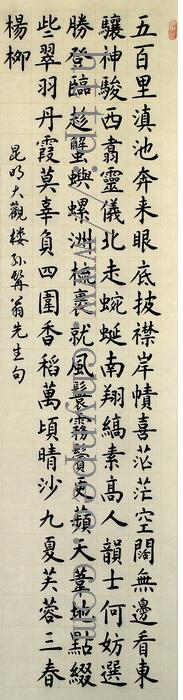 五百里滇池奔来眼底披襟岸幘喜茫茫空闊無邊看東
驤神駿西翥靈儀北走蜿蜒南翔縞素高人韻士何妨選
勝登臨趁蟹嶼螺洲梳裹就風鬟霧鬢更蘋天葦地點綴
些翠羽丹霞莫辜負四圍香稻萬頃晴沙九夏芙蓉三春
楊柳
昆明大觀楼孙髯翁先生句